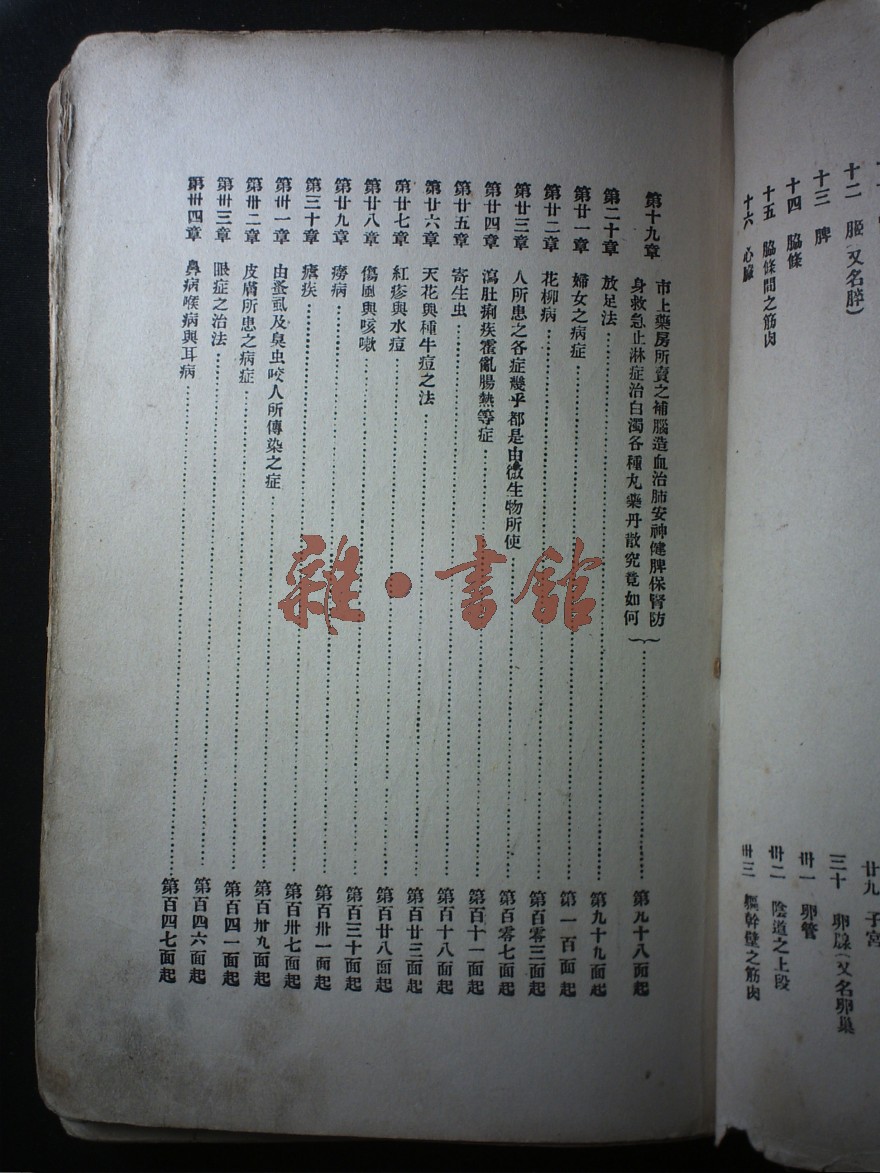 十二 胰(又名膵)
十三 脾
十四 脇條
十五 脇條間之筋肉
十六 心臟
廿九 子宮
三十 卵腺(又名卵巢
卅一 卵管
卅二 陰道之上段
卅三 軀幹壁之筋肉
第十九章 市上藥房所賣之補腦造血治肺安神健脾保腎防
身救急止淋症治白濁各種丸藥丹散究竟如何 第九十八面起
第二十章 放足法 第九十九面起
第廿一章 婦女之病症 第一百面起
第廿二章 花柳病 第百零三面起
第廿三章 人所患之各症幾乎都是由微生物所使 第百零七面起
第廿四章 瀉肚痢疾霍亂腸熱等症 第百十一面起
第廿五章 寄生虫 第百十八面起
第廿六章 天花與種牛痘之法 第百廿三面起
第廿七章 紅疹與水痘 第百廿八面起
第廿八章 傷風與咳嗽 第百三十面起
第廿九章 癆病 第百卅一面起
第三十章 瘧疾 第百卅七面起
第卅一章 由蚤虱及臭虫咬人所傳染之症 第百卅九面起
第卅二章 皮膚所患之病症 第百四一面起
第卅三章 眼症之治法 第百四六面起
第卅四章 鼻病喉病與耳病 第百四七面起
雜·書館